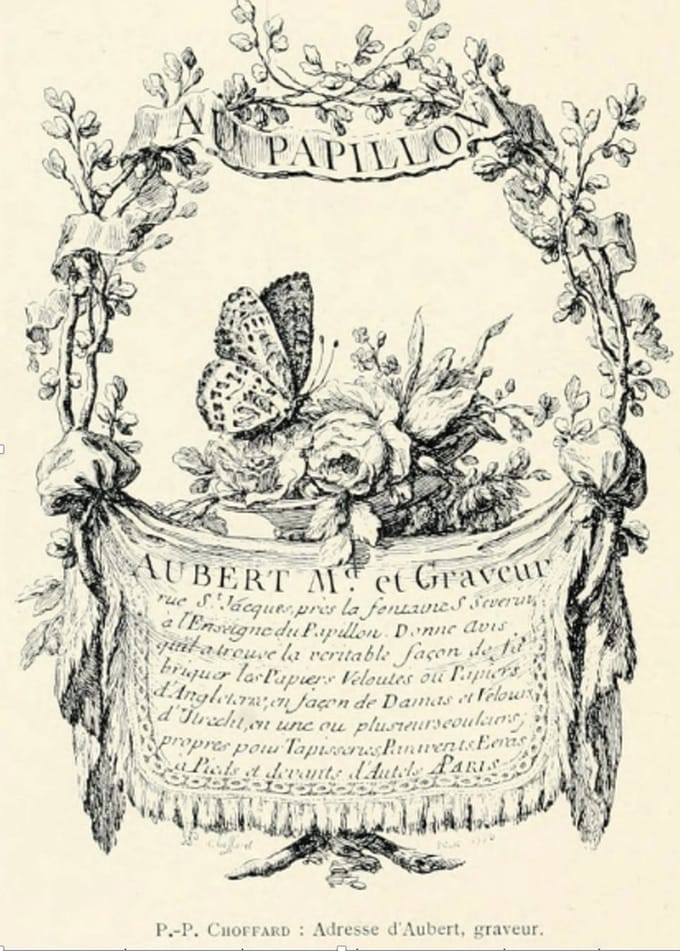 AU PAPILLON
AUBERT Md. et Graveur
rue St. Jacques, près la fontaine S Severin,
a l'Enseigne du Papillon. Donne Avis
qu'il a trouvé la veritable façon de fa
briquer les Papiers Veloutés ou Papiers
d'Angleterre, en façon de Damas et Velours
d'Utrecht, en une ou plusieurs couleurs,
propres pour Tapisseries, Paravents, Ecrans
a Pieds et devants d'Autels A PARIS
Choffard
P.-P. CHOFFARD : Adresse d'Aubert, graveur.